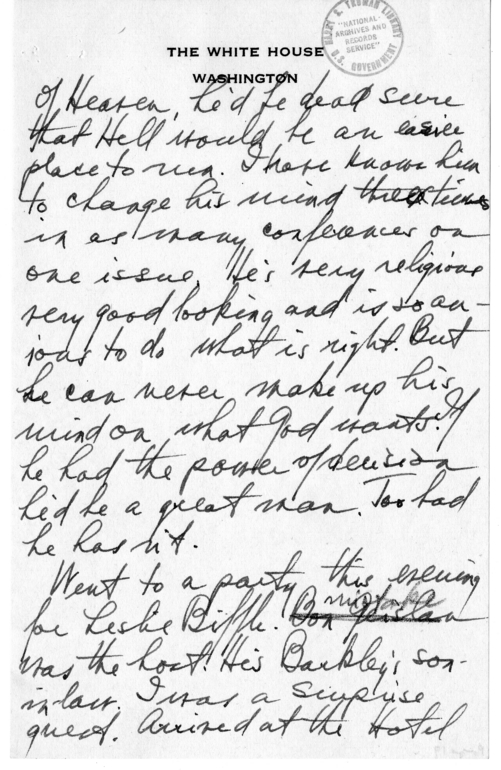 HARRY S. TRUMAN LIBRARY
"NATIONAL
ARCHIVES AND
RECORDS
SERVICE"
U.S. GOVERNMENT
THE WHITE HOUSE
WASHINGTON
of Heaven, he'd be dead sure
that Hell would be an easier
place to run. I have known him
to change his mind three times
in as many conferences on
one issue. He's very religious
very good looking and is so anx-
ious to do what is right. But
he can never make up his
mind on what God wants. If
he had the power of decision
he'd be a great man. Too bad
he hasn't.
Went to a party this evening
for Leslie Biffle.
was the host. His Barkley's son-
in-law. I was a surprise
guest. Arrived at the Hotel